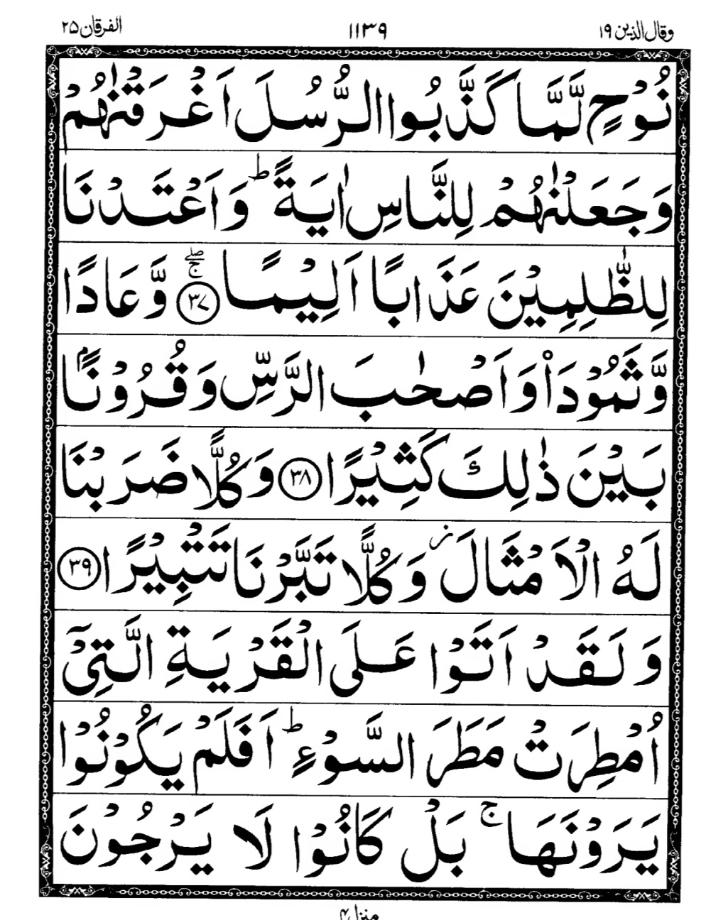 وقال الذین ۱۹ ۱۱۳۹ الفرقان ۲۵
نُوۡحٍ لَّمَّا كَذَّبُوا الرُّسُلَ اَغۡرَقۡنٰهُمۡ
وَجَعَلۡنٰهُمۡ لِلنَّاسِ اٰيَةً ؕ وَاَعۡتَدۡنَا
لِلظّٰلِمِيۡنَ عَذَابًا اَلِيۡمًا ۚ ۖ ﴿۳۷﴾ وَّعَادًا
وَّثَمُوۡدَا۟ وَاَصۡحٰبَ الرَّسِّ وَقُرُوۡنًۢا
بَيۡنَ ذٰلِكَ كَثِيۡرًا ﴿۳۸﴾ وَكُلًّا ضَرَبۡنَا
لَهُ الۡاَمۡثَالَ ز وَكُلًّا تَبَّرۡنَا تَتۡبِيۡرًا ﴿۳۹﴾
وَلَقَدۡ اَتَوۡا عَلَى الۡقَرۡيَةِ الَّتِىۡۤ
اُمۡطِرَتۡ مَطَرَ السَّوۡءِ ؕ اَفَلَمۡ يَكُوۡنُوۡا
يَرَوۡنَهَا ۚ بَلۡ كَانُوۡا لَا يَرۡجُوۡنَ
منزل ۴